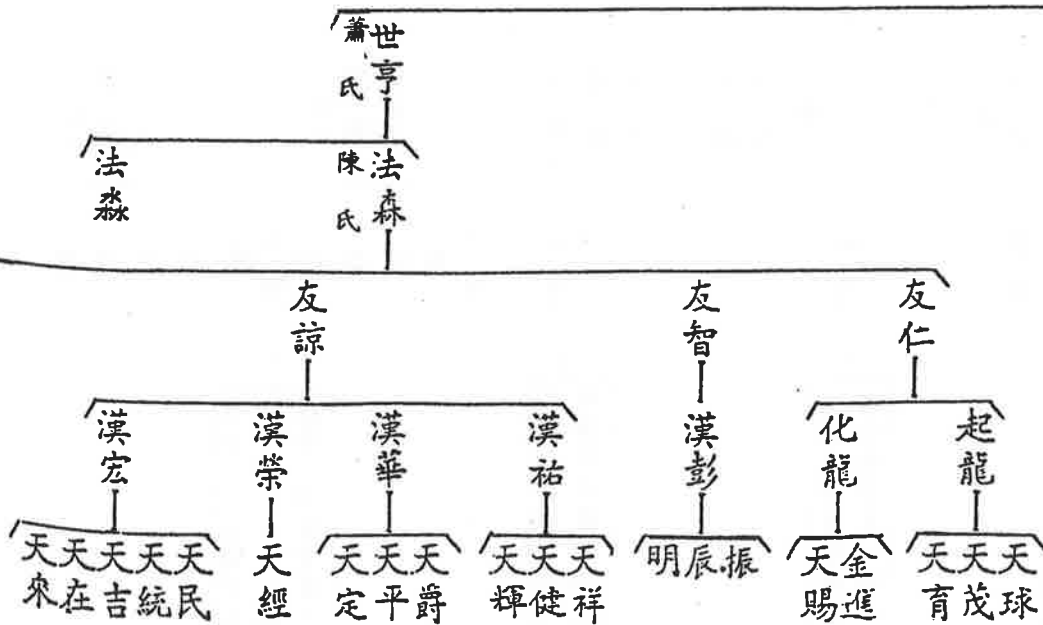 世亨
蕭氏
法森
陳氏
法淼
友仁
友智
友諒
起龍
化龍
漢彭
漢祐
漢華
漢榮
漢宏
天球
天茂
天育
金進
天賜
振
辰
明
天祥
天健
天輝
天爵
天平
天定
天經
天民
天統
天吉
天在
天來